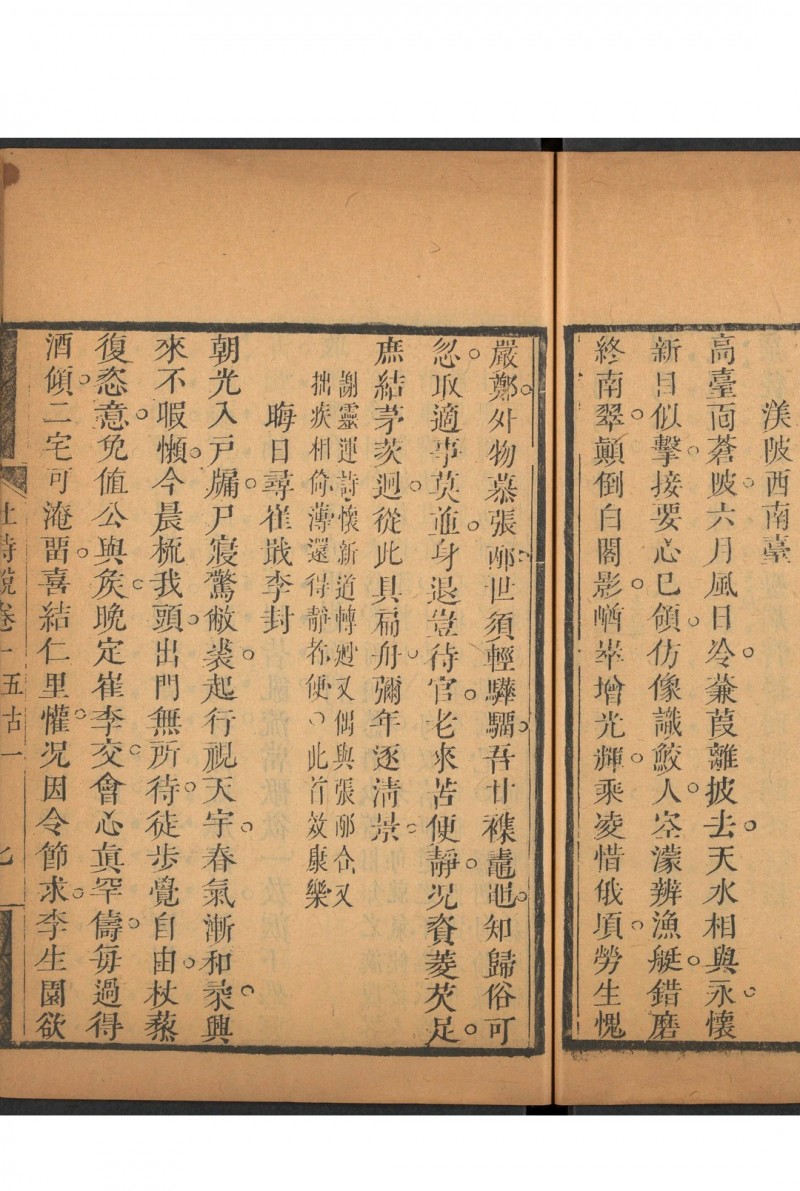 渼陂西南臺
高臺面蒼陂六月風日冷蒹葭離披去天水相與永懷
新目似擊接要心已領仿像識鮫人空濛辨漁艇錯磨
終南翠顛倒白閣影崷崒增光輝乘凌惜俄頃勞生愧
嚴鄭外物慕張邴世須輕驊騮吾甘襍鼃黽知歸俗可
忽取適事莫並身退豈待官老來苦便靜况資菱芡足
庶結茅茨迥從此具扁舟彌年逐淸景
謝靈運詩懷新道轉迥又偶與張邴合又
拙疾相倚薄還得靜者便○此首效康樂
晦日尋崔戢李封
朝光入戸牖尸寢驚敝裘起行視天宇春氣漸和柔興
來不暇懶今晨梳我頭出門無所待徒步覺自由杖藜
復恣意免值公與矦晚定崔李交會心眞罕儔每過得
酒傾二宅可淹畱喜結仁里懽况因令節求李生園欲
杜詩說卷十五古一 七